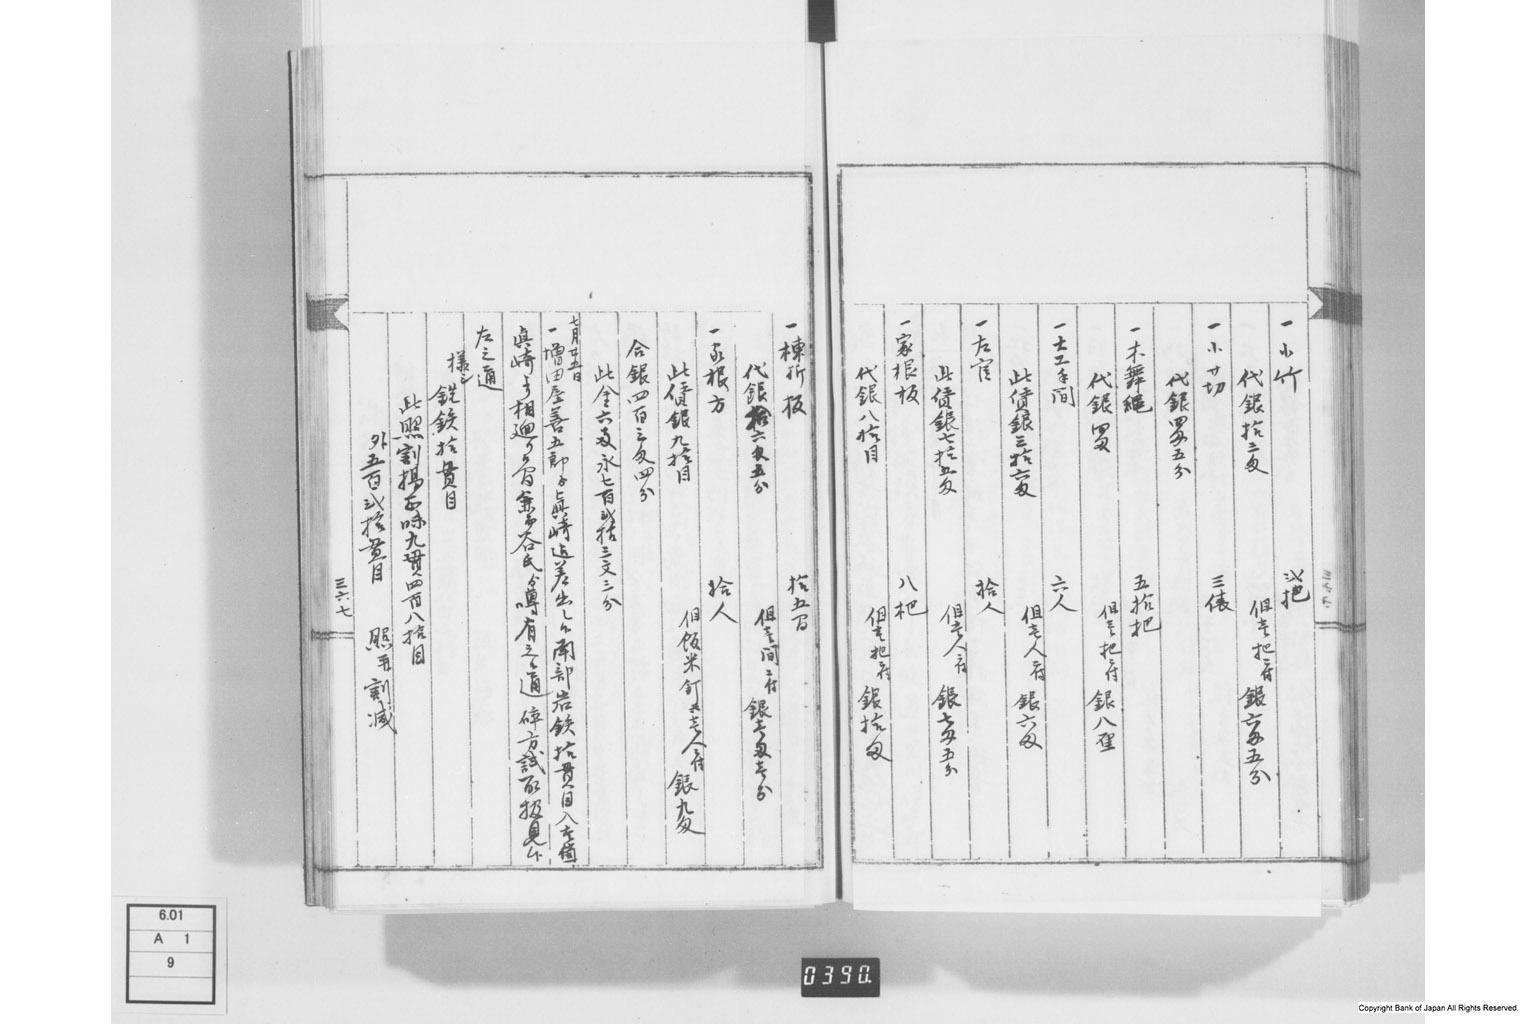 一小竹　弐把
代銀拾三匁　但壱把ニ付銀六匁五分
一小サ切　三俵
代銀四匁五分
一木舞縄　五拾把
代銀四匁　但壱把ニ付銀八厘
一大工手間　六人
此賃銀三拾六匁　但壱人ニ付銀六匁
一左官　拾人
此賃銀七拾五匁　但壱人ニ付銀七匁五分
一家根板　八把
代銀八拾目　但壱把ニ付銀拾匁
一棟折板　拾五間
代銀拾六匁五分　但壱間ニ付銀壱匁壱分
一家根方　拾人
此賃銀九拾目　但飯米釘共壱人ニ付銀九匁
合銀四百三匁四分
此金六両永七百弐拾三文三分
七月廿五日
一増田屋善五郎　眞崎　差出し　南部岩鉄拾貫目入壱
眞崎　相廻　氏　噂有之　通　砕方試　見
左之通
様シ
銑鉄拾貫目
此照割揚正味九貫四百八拾目
外五百弐拾貫目　照割減
三六七
6.01
A 1
9
0390.
Copyright Bank of Japan All Rights Reserved.